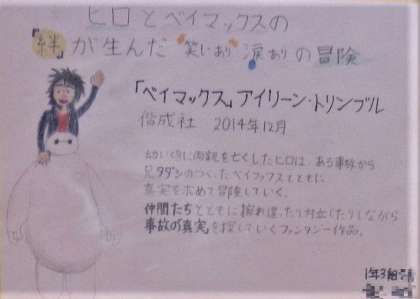 ヒロとベイマックスの
『絆』が生んだ 笑いあり 涙ありの冒険
「ベイマックス」アイリーン・トリンブル
偕成社 2014年12月
幼い頃に両親を亡くしたヒロは、ある事故から
兄タダシのつくったベイマックスとともに
真実を求めて冒険していく。
仲間たちとともに擦れ違ったり対立したりしながら
事故の真実を探していくファンタジー作品。
1年3組